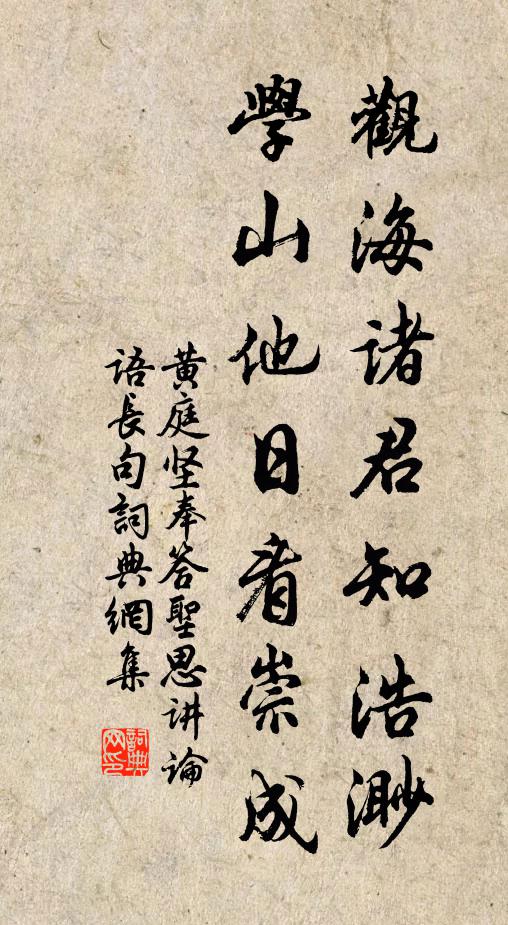 觀海諸君知浩渺
學山他日看崇成
黄庭坚奉答聖思讲論
語長句詞典網集
詞典网印